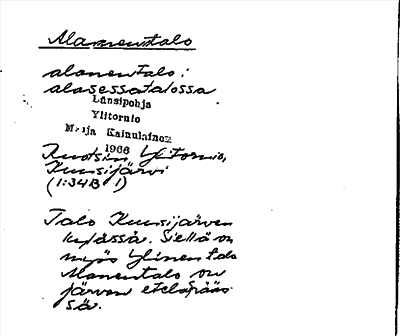 Alanentalo
alanentalo:
alasessatalossa
Länsipohja
Ylitornio
Maija Kainulainen
1966
Ruotsin Ylitornio,
Kuusijärvi
(1:34B 1)
Talo Kuusijärven
kylässä. Siellä on
myös Ylinentalo
Alanentalo on
järven eteläpääs
sä.